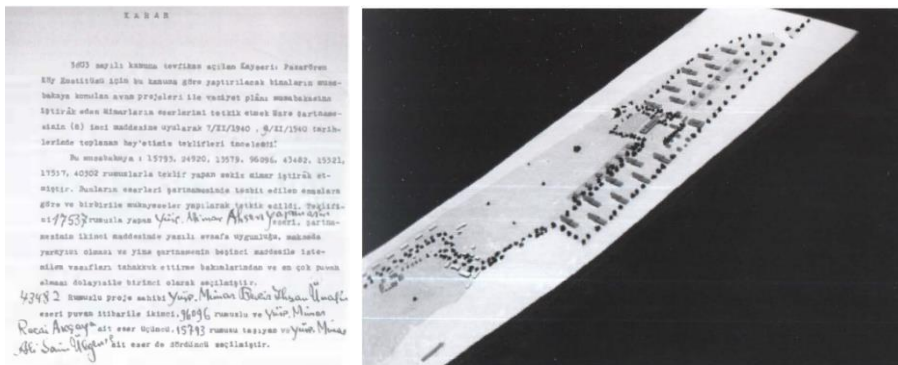 KARAR
3803 sayılı kanuna tevfikan açılan Kayseri: Pazarören
Köy Enstitüsü için bu kanuna göre yaptırılacak binaların müsa-
bakaya konulan avan projeleri ile vaziyet plânı müsabakasına
iştirâk eden Mimarların eserlerini tetkik etmek üzre şartname-
sinin (6) ıncı maddesine uyularak 7/XI/1940 . 9/XI/1940 tarih-
lerinde toplanan hey'etimiz teklifleri inceledi:
Bu müsabakaya : 15793, 24920, 13579, 96096, 43482, 15521,
17537, 40302 rumuzlarla teklif yapan sekiz mimar iştirâk et-
miştir. Bunların eserleri şartnamesinde tesbit edilen esaslara
göre ve birbirile mukayeseler yapılarak tetkik edildi. Teklifle-
ri 17537 rumuzla yapan Yük. Mimar Ahsen Yapanar'ın eseri, şartna-
mesinin ikinci maddesinde yazılı evsafa uygunluğu, maksada
yarayıcı olması ve yine şartnamenin beşinci maddesile iste-
nilen vasıfları tahakkuk ettirme bakımlarından ve en çok puvan
alması dolayısile birinci olarak seçilmiştir.
43482 Rumuzlu proje sahibi Yük. Mimar İhsan
eseri puvan itibarile ikinci, 96096 rumuzlu ve Yük. Mimar
Recai Akçay'a ait eser üçüncü, 15793 rumuzu taşıyan ve Yük. Mimar
Ali Saim Ülgen'e ait eser de dördüncü seçilmiştir.